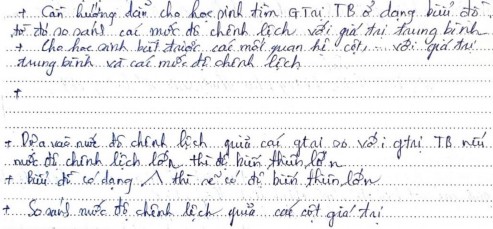 + Cần hướng dẫn cho học sinh tìm GTrị TB ở dạng biểu đồ,
từ đó so sánh các mức độ chênh lệch với giá trị trung bình
+ Cho học sinh bắt được các mối quan hệ cột... với giá trị
trung bình và các mức độ chênh lệch
+
+ Dựa vào mức độ chênh lệch giữa các gtrị so với gtrị TB nếu
mức độ chênh lệch lớn thì độ biến thiên lớn
+ Biểu đồ có dạng Λ thì sẽ có độ biến thiên lớn
+ So sánh mức độ chênh lệch giữa các cột giá trị